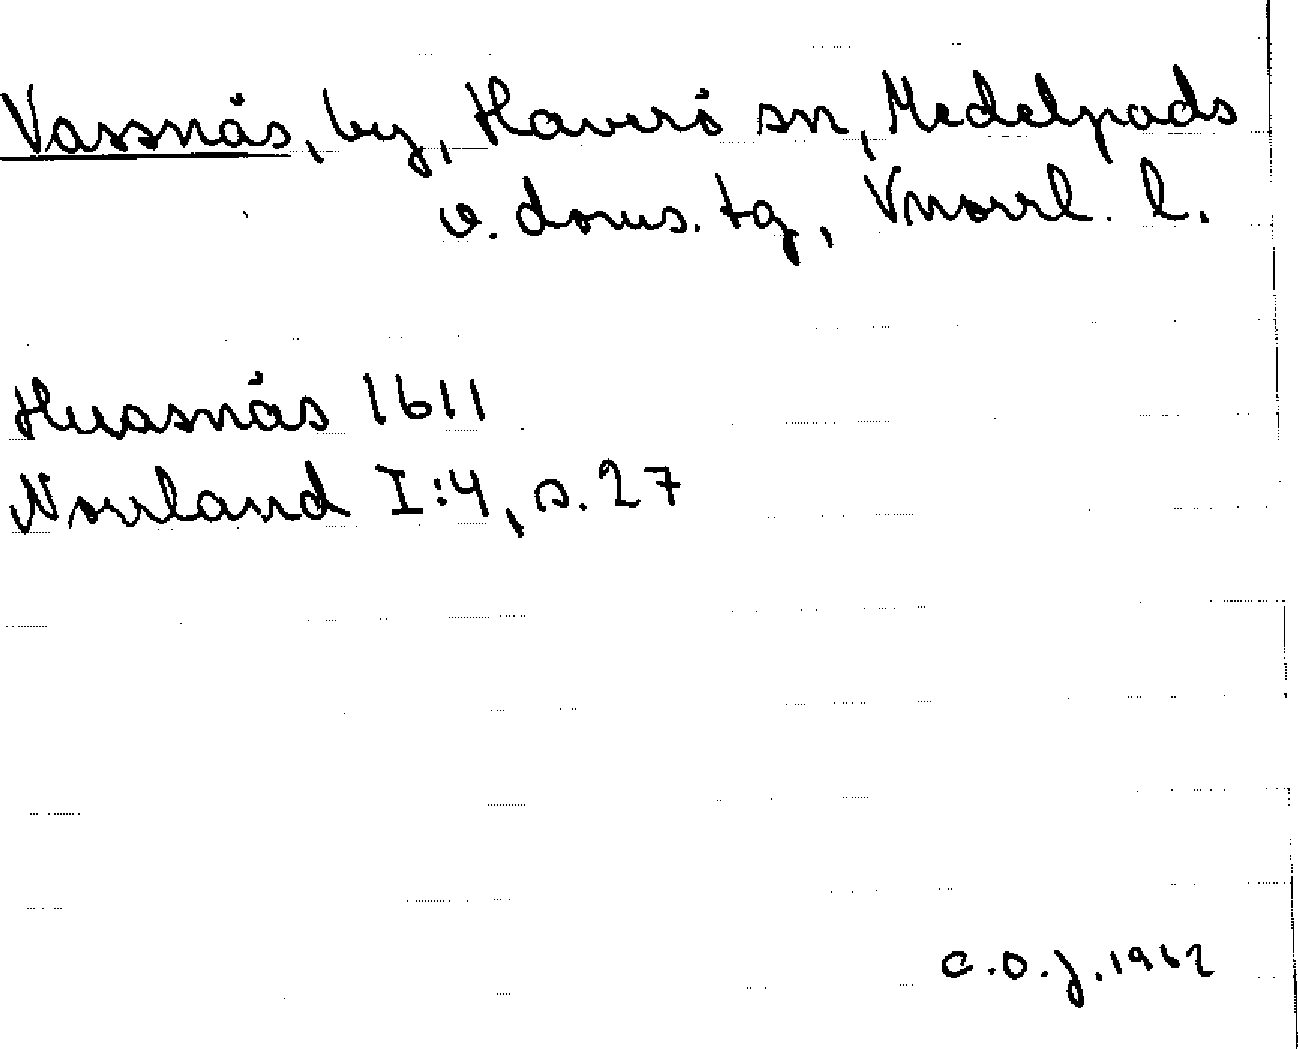 Vassnäs, by, Haverö sn, Medelpads
v. doms. tg, Vnorrl. l.
Huasnäs 1611
Norrland I:4, s. 27
C.O.J. 1962